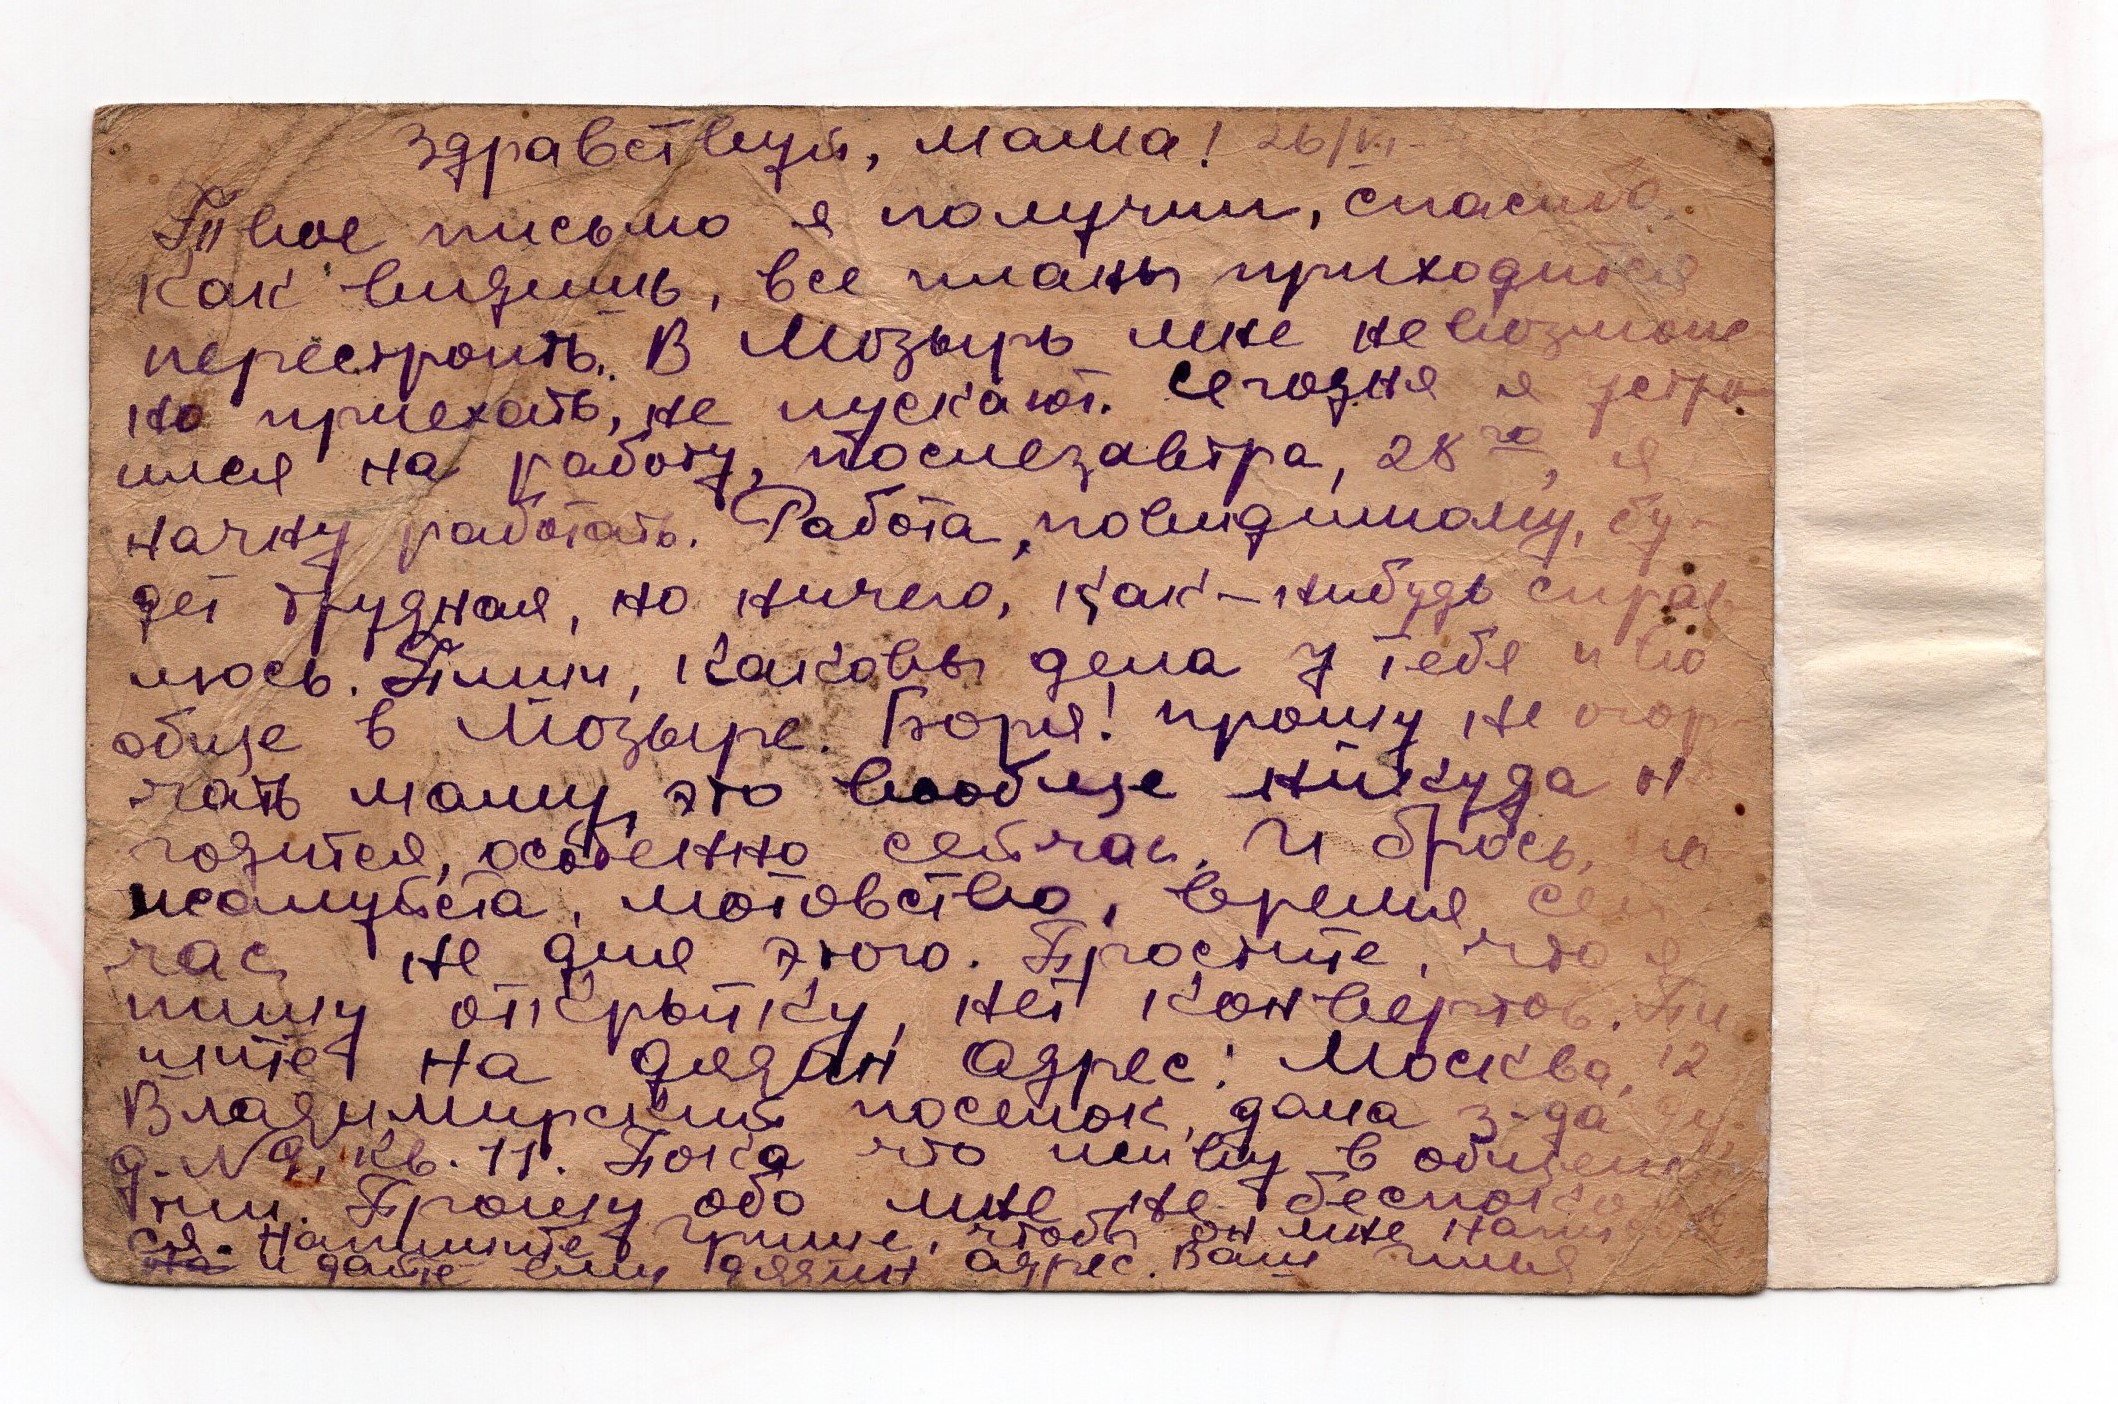 Здравствуй, мама! 26/VI-
Твое письмо я получил, спасибо.
Как видишь, все планы приходится
перестроить. В Мозырь мне невозмож
но приехать, не пускают. Сегодня я устро
ился на работу, послезавтра, 28го, я
начну работать. Работа, повидимому, бу-
дет трудная, но ничего, как-нибудь справ
люсь. Пиши, каковы дела у тебя и во
обще в Мозыре. Боря! прошу не огор-
чать маму, это вообще никуда н
годится, особенно сейчас. И брось, по-
жалуйста, мотовство, время сей-
час не для этого. Простите, что я
пишу открытку, нет конвертов. Пи-
шите на дядин адрес: Москва, 12
Владимирский поселок, дома з-да
д. N 9, кв. 11. Пока что живу в общежи
тии. Прошу обо мне не беспоко
ся. Напишите Грише, чтобы он мне написал
и дайте ему дядин адрес. Ваш Илья